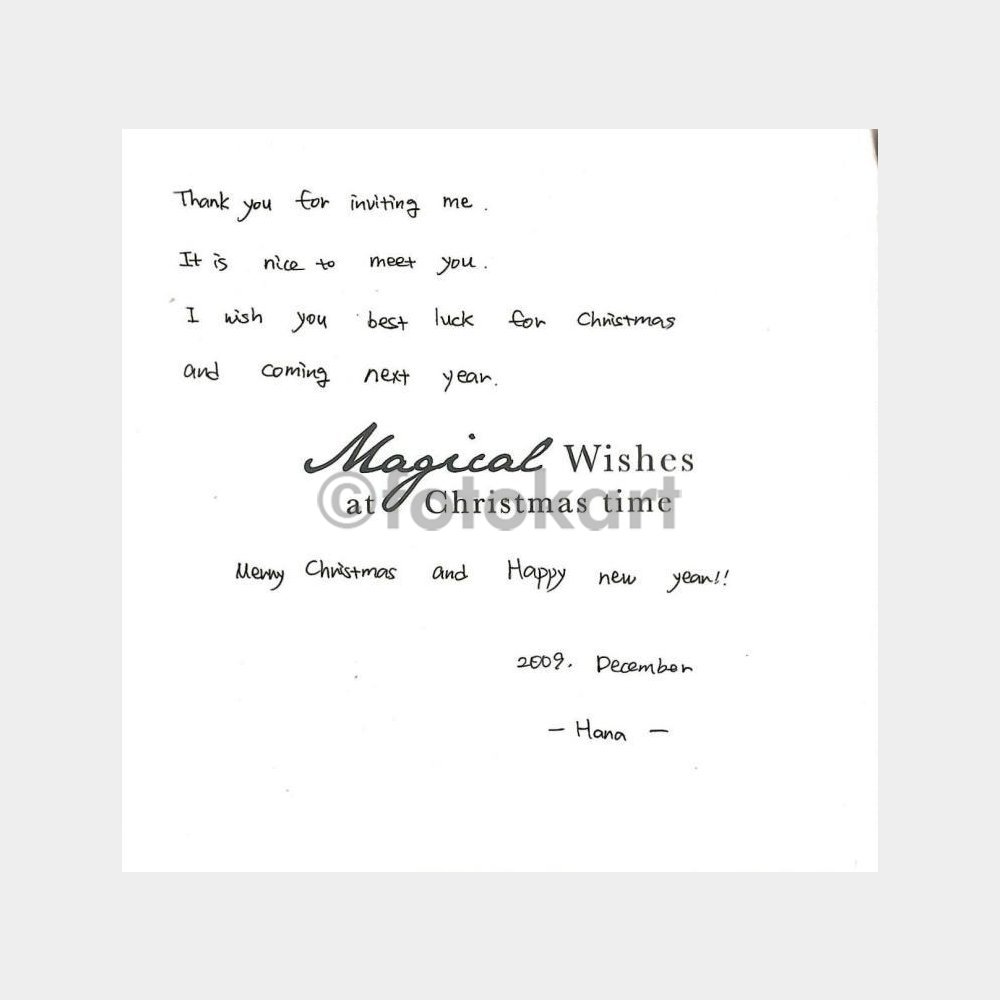 Thank you for inviting me.
It is nice to meet you.
I wish you best luck for Christmas
and coming next year.
Magical Wishes
at Christmas time
©fotokart
Merry Christmas and Happy new year!!
2009. December
- Hana -